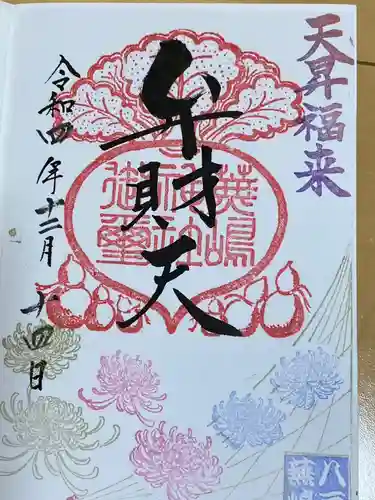 天昇福来
弁財天
蕪嶋神社御璽
令和四年十二月十四日
八
蕪